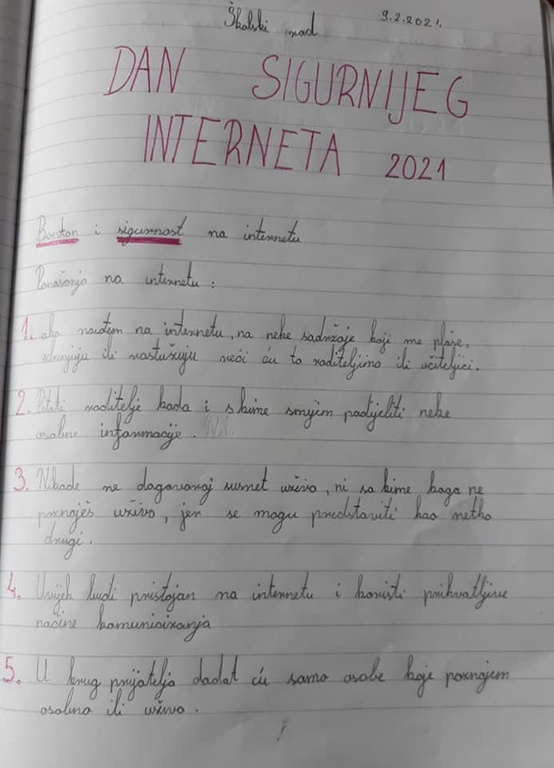 Školski rad 9.2.2021.
DAN SIGURNIJEG
INTERNETA 2021
Bonton i sigurnost na internetu
Ponašanja na internetu:
1. ako naiđem na internetu, na neke sadržaje koji me plaše,
zbunjuju ili rastužuju reći ću to roditeljima ili učiteljici.
2. Pitati roditelje kada i s kime smijem podijeliti neke
osobne informacije.
3. Nikada ne dogovaraj susret uživo, ni sa kime koga ne
poznaješ uživo, jer se mogu predstaviti kao netko
drugi.
4. Uvijek budi pristojan na internetu i koristi prihvatljive
načine komuniciranja
5. U krug prijatelja dodat ću samo osobe koje poznajem
osobno ili uživo.